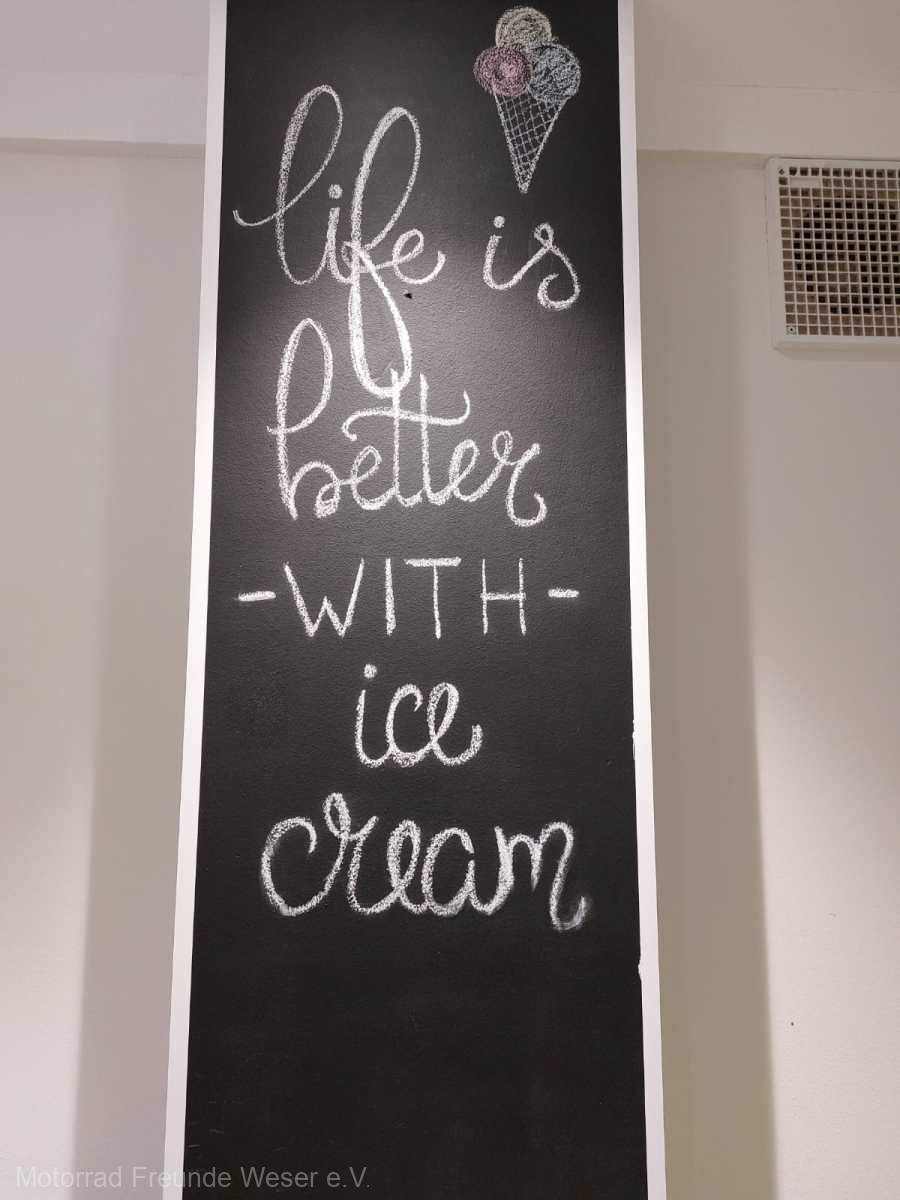 life is
better
-WITH-
ice
cream
Motorrad Freunde Weser e.V.